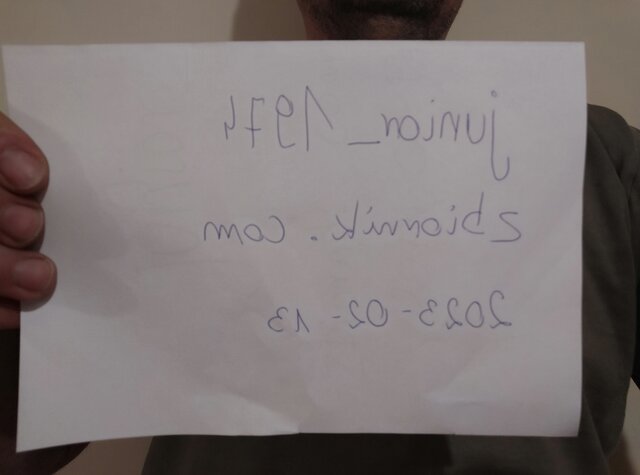 junior_1974
zbiornik.com
2023-02-13